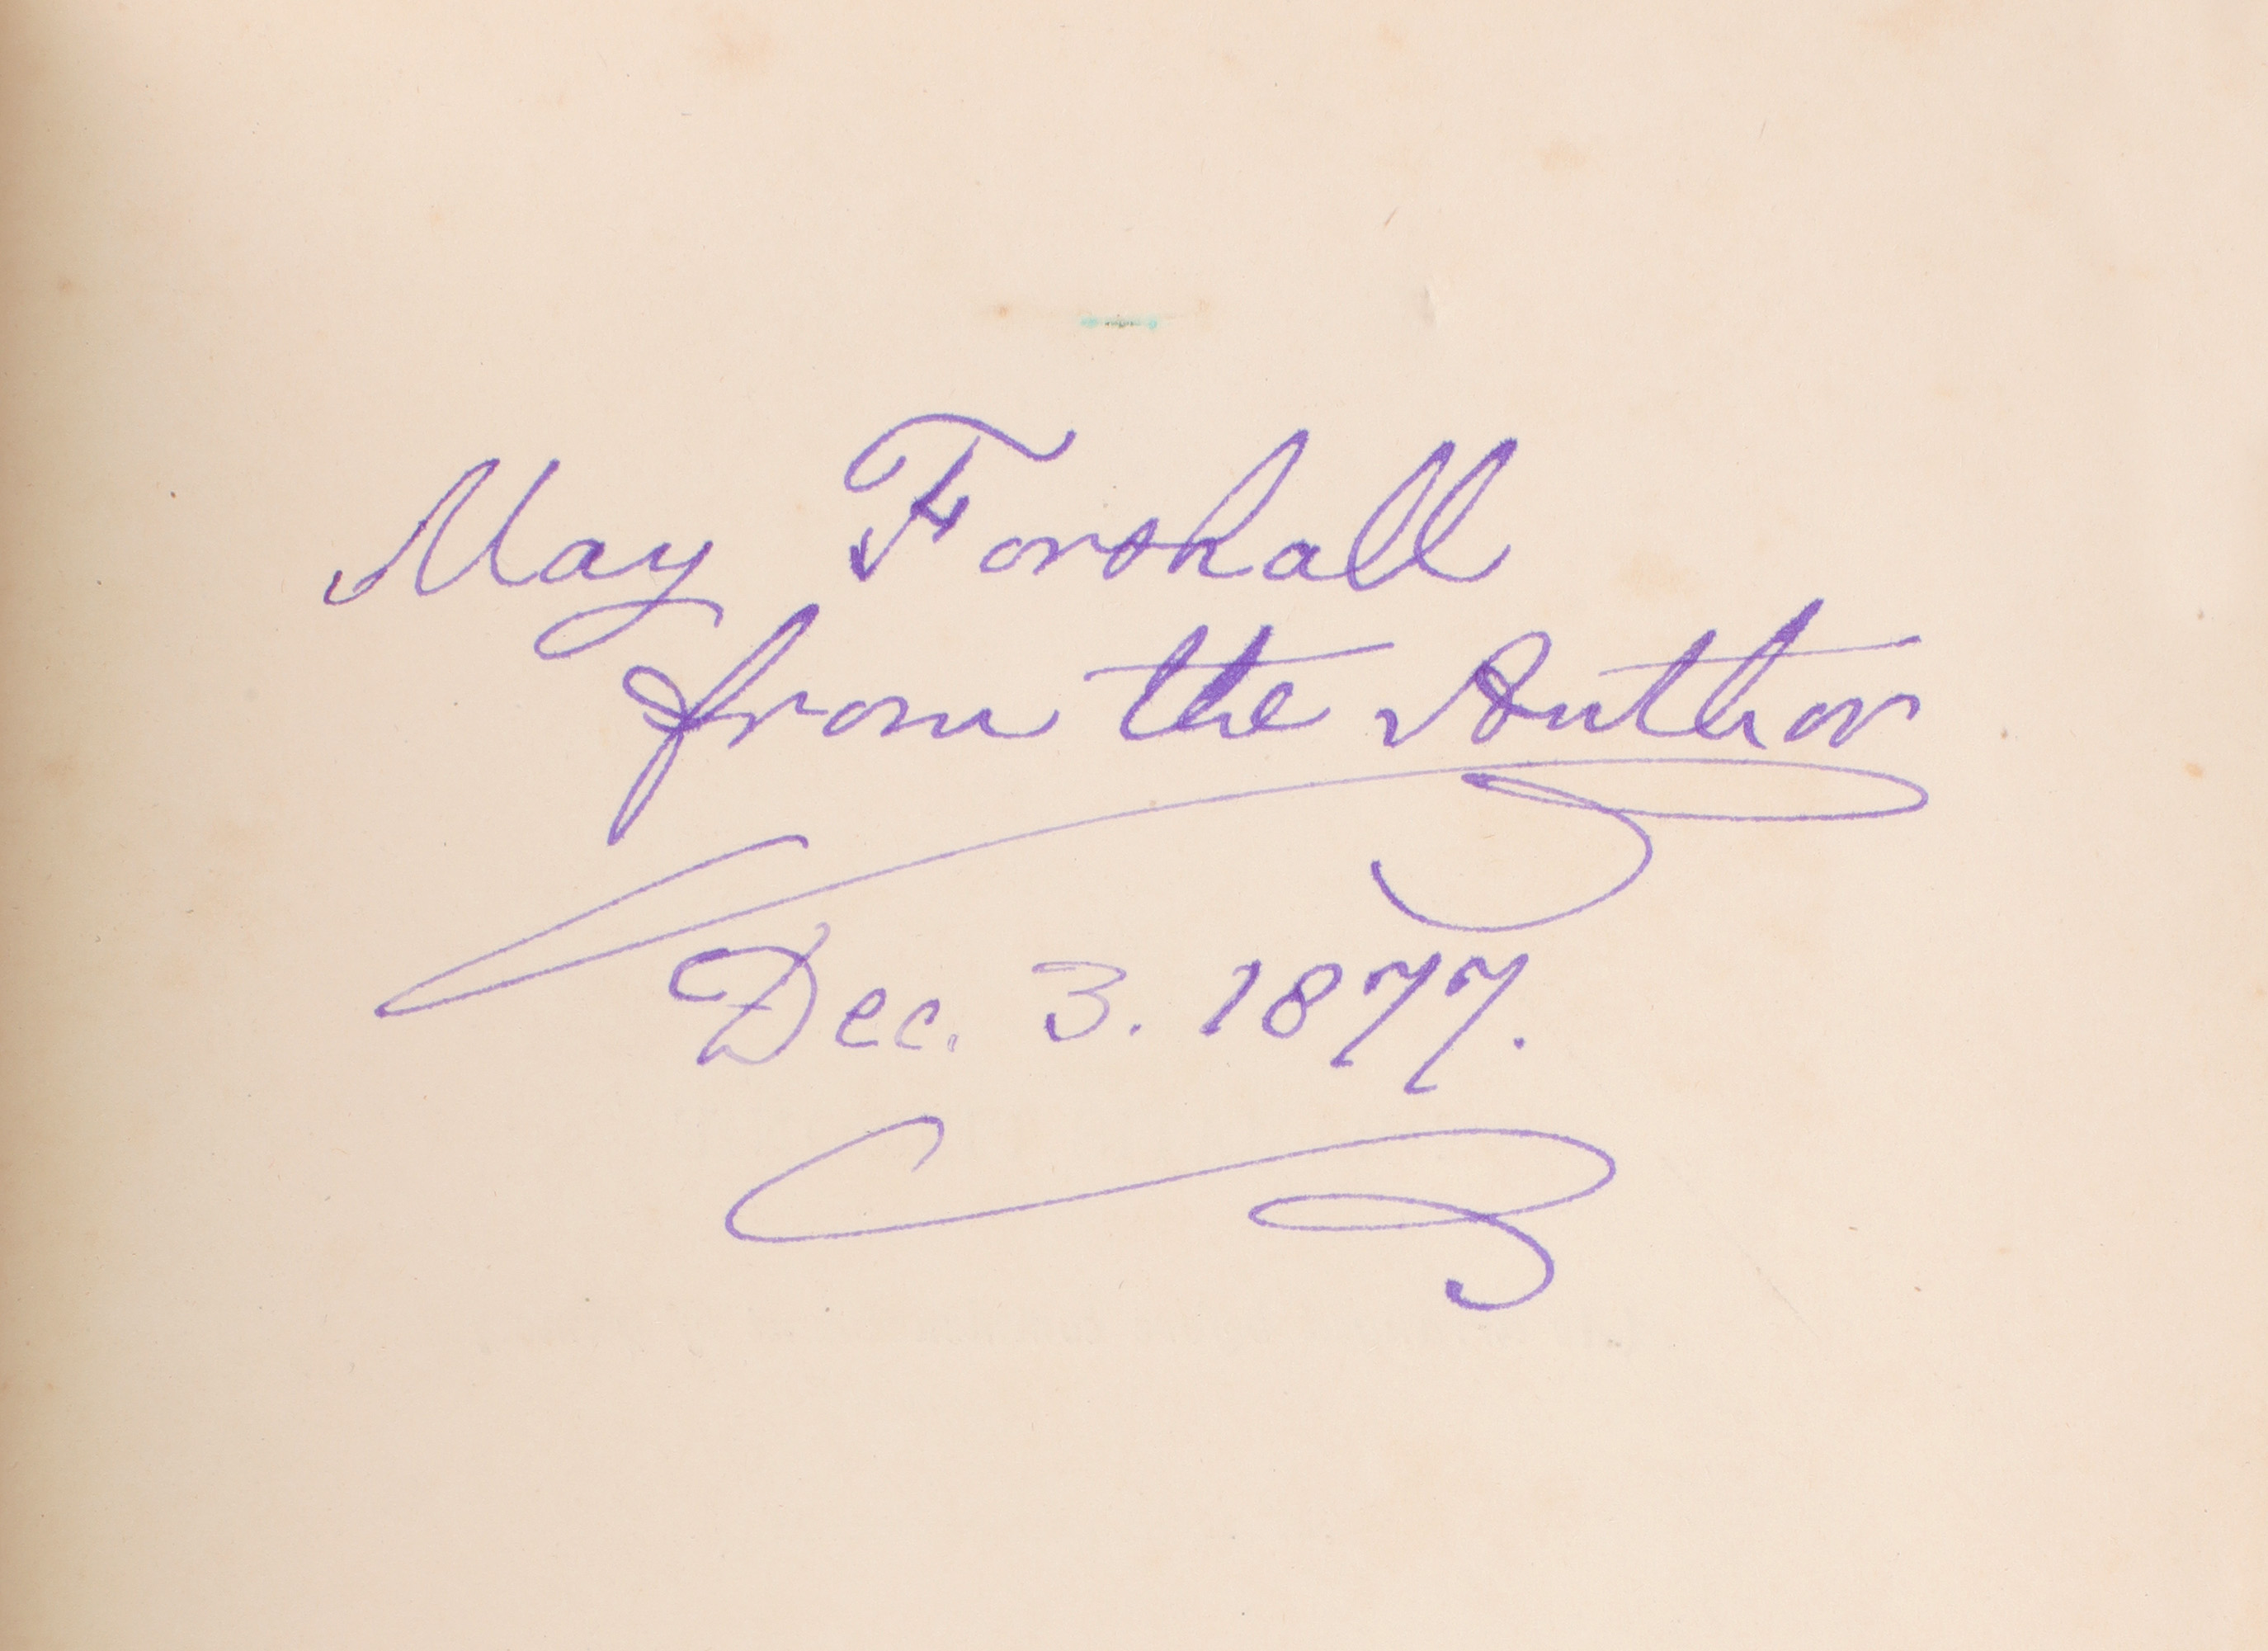 May Forshall
from the Author
Dec. 3. 1877.